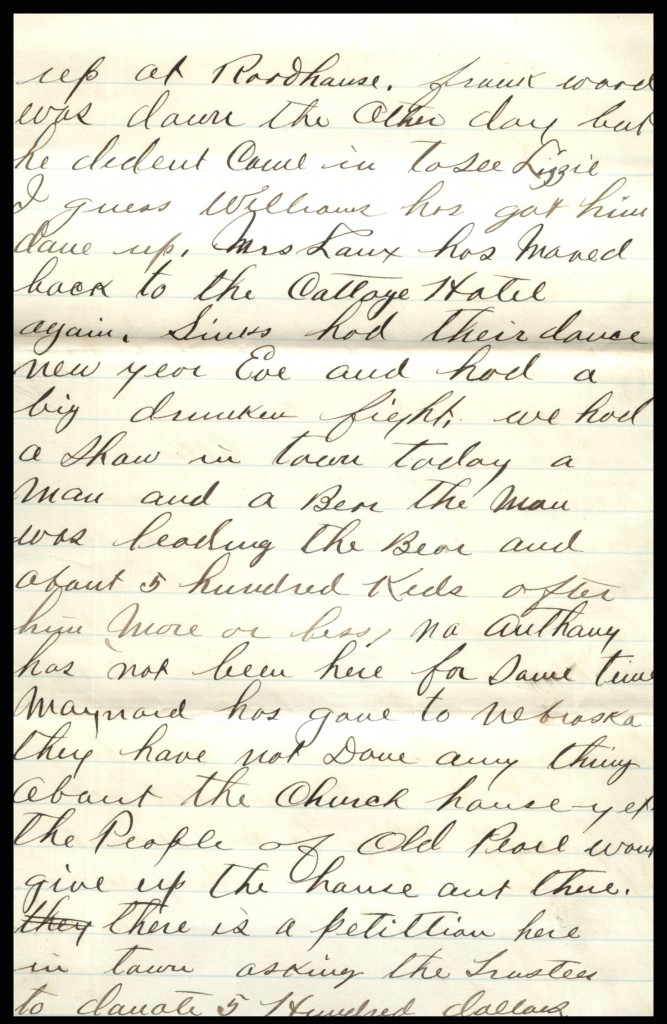 up at Roodhouse. frank word
was down the Other day but
he dident Come in to see Lizzie
I guess Williams has got him
done up. Mrs Laux has Moved
back to the Cottage Hotel
again. Sinks had their dance
new year Eve and had a
big drunken fight. we had
a Show in town today a
Man and a Bear the Man
was leading the Bear and
about 5 hundred Kids after
him More or less, no Anthany
has not been here for Some time
Maynard has gone to Nebraska
they have not Done any thing
About the Church house yet
The People of Old Pearl wont
give up the house out there.
~~they~~ there is a petittion here
in town asking the Trustees
to donate 5 Hundred dollars